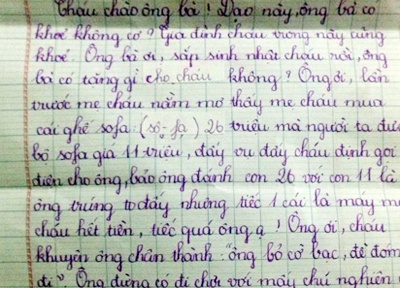 Cháu chào ông bà ! Dạo này, ông bà có
khoẻ không cơ ? Gia đình cháu trong này cũng
khoẻ. Ông bà ơi, sắp sinh nhật cháu rồi, ông
bà có tặng gì cho cháu không ? Ông ơi, lần
trước mẹ cháu nằm mơ thấy mẹ cháu mua
cái ghế sofa (sô-fa) 26 triệu mà người ta đưa
bộ sofa giá 11 triệu, đấy vụ đấy cháu định gọi
điện cho ông, bảo ông đánh con 26 với con 11 là
ông trúng to đấy nhưng tiếc 1 cái là máy mẹ
cháu hết tiền, tiếc quá ông ạ ! Ông ơi, cháu
khuyên ông chân thành: "ông bỏ cờ bạc, đề đóm
đi". Ông đừng có đi chơi với mấy chú nghiện